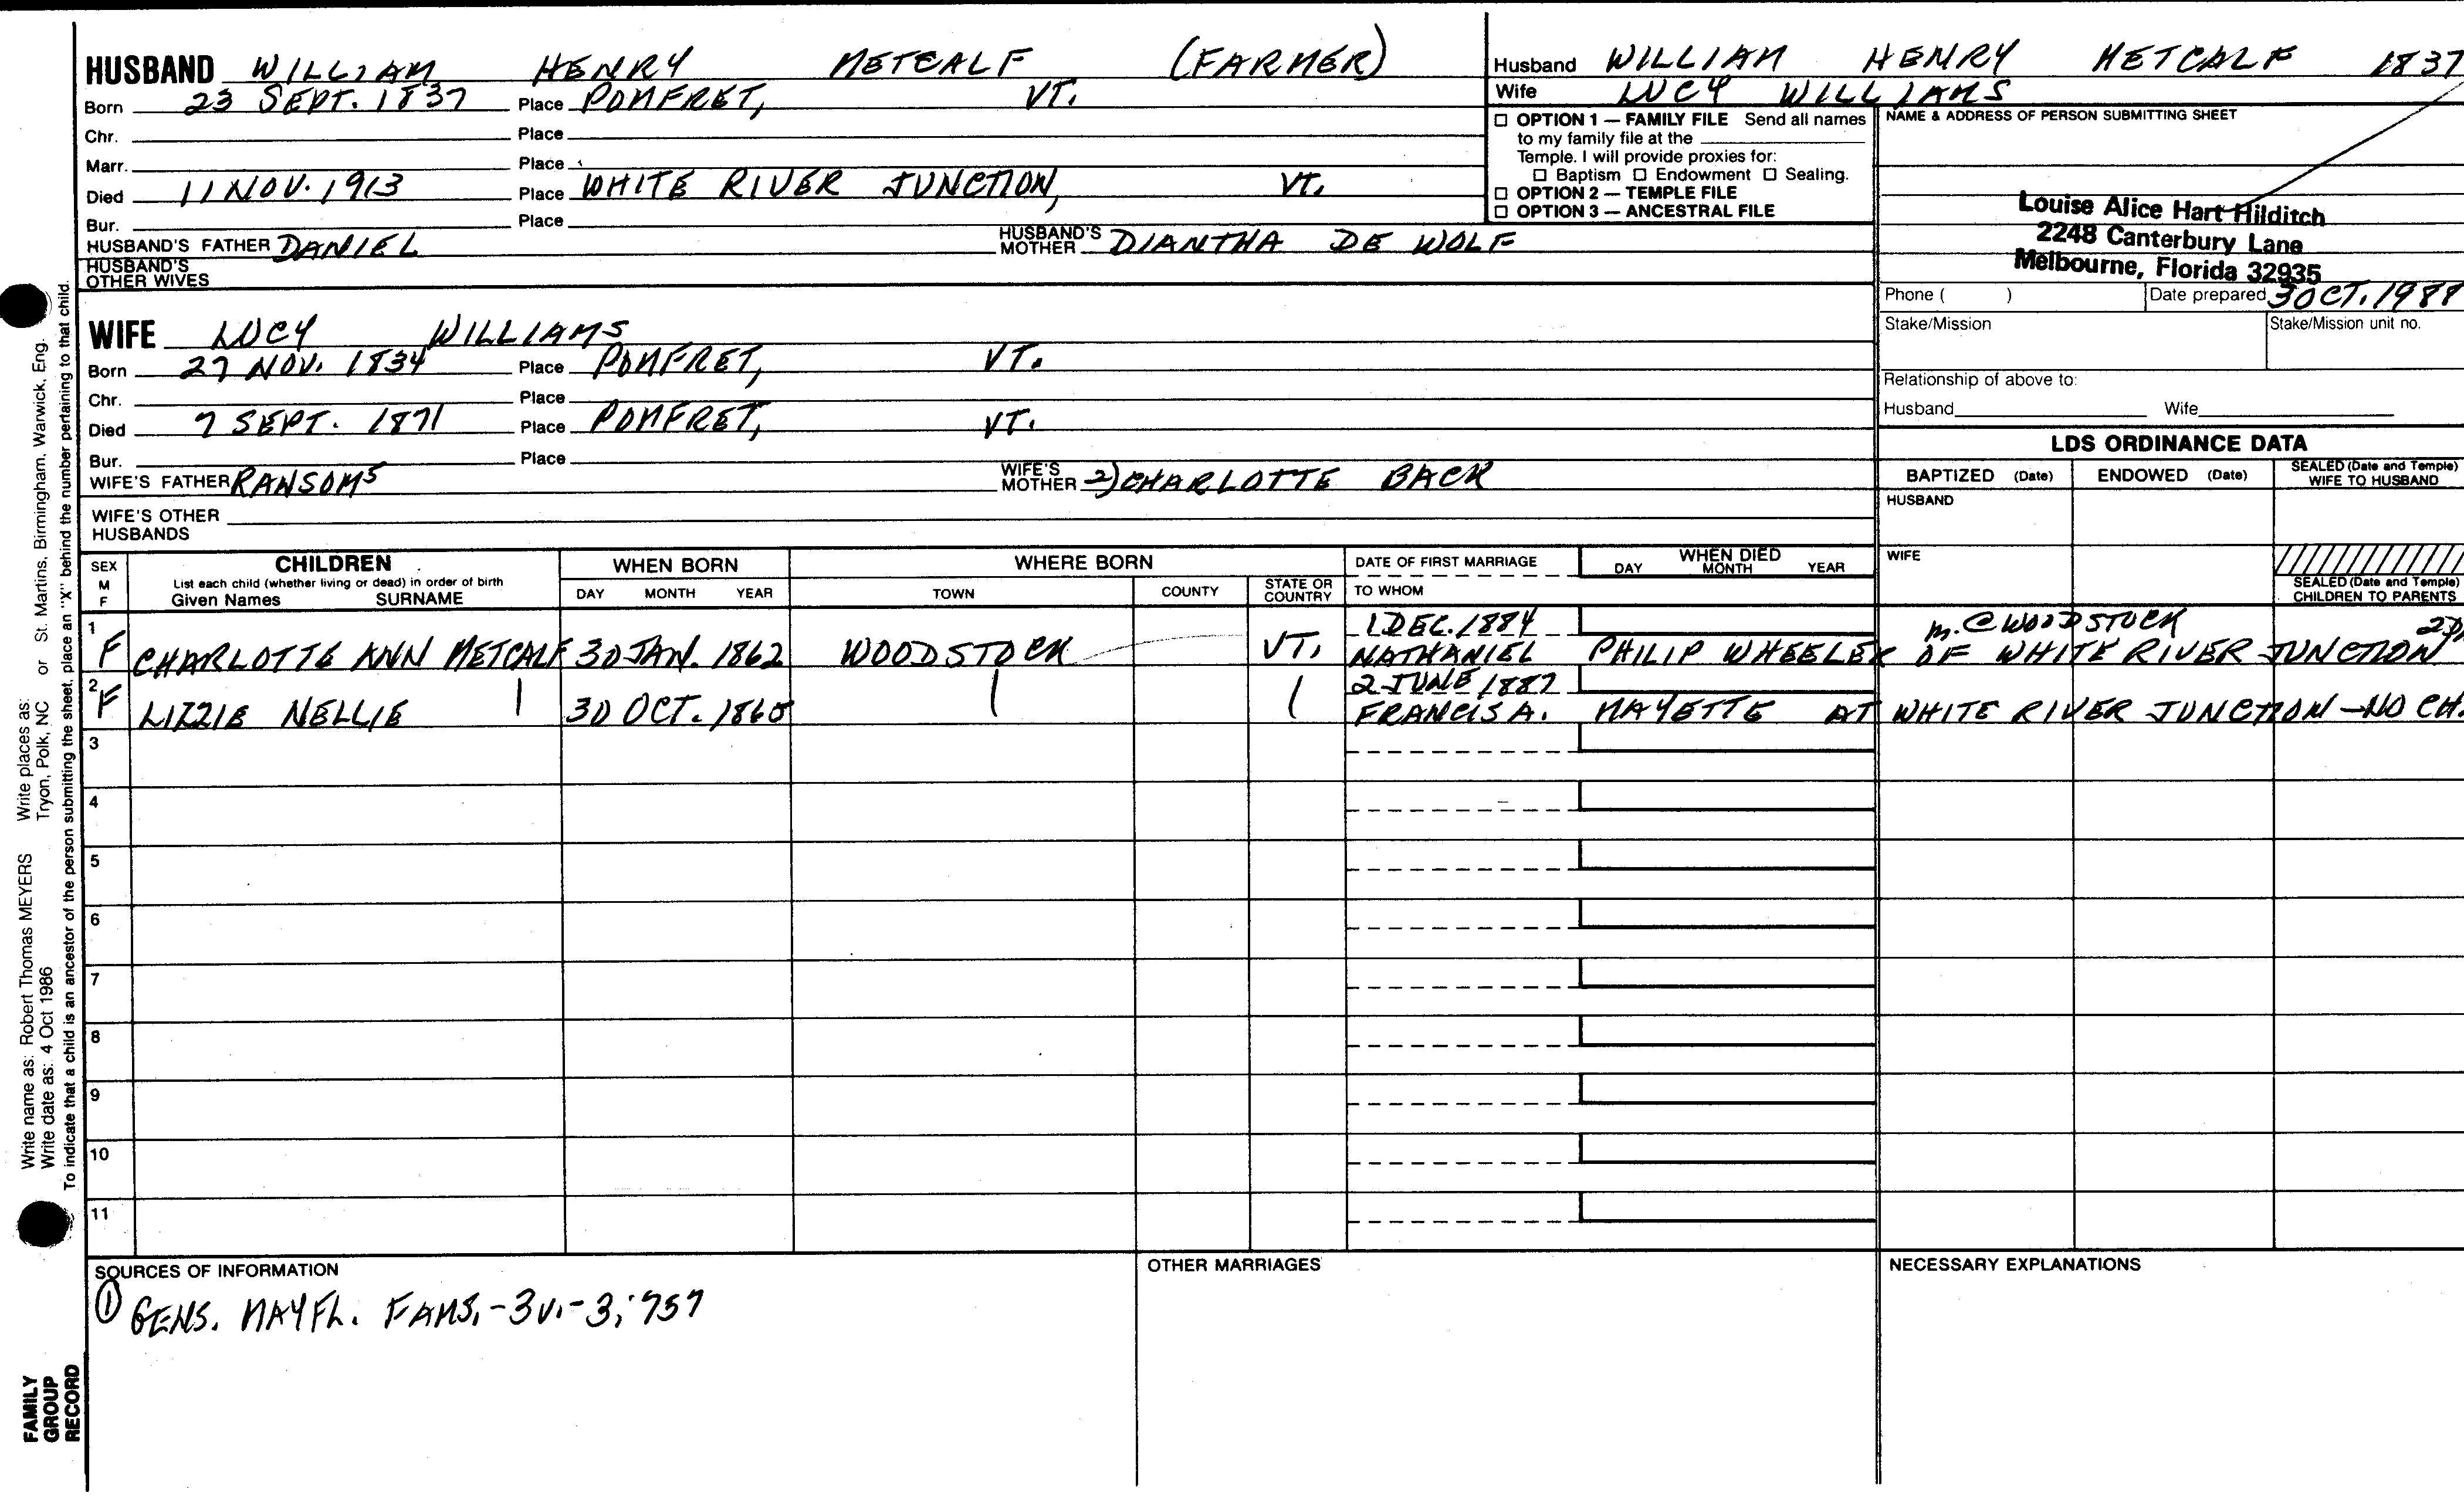 HUSBAND WILLIAM HENRY METCALF (FARMER)
Born 23 SEPT. 1837 Place POMFRET, VT.
Chr. Place
Marr. Place
Died 11 NOV. 1913 Place WHITE RIVER JUNCTION, VT.
Bur. Place
HUSBAND'S FATHER DANIEL HUSBAND'S MOTHER DIANTHA DE WOLF
HUSBAND'S OTHER WIVES
WIFE LUCY WILLIAMS
Born 27 NOV. 1834 Place POMFRET, VT.
Chr. Place
Died 7 SEPT. 1871 Place POMFRET, VT.
Bur. Place
WIFE'S FATHER RANSOM5 WIFE'S MOTHER 2) CHARLOTTE BACK
WIFE'S OTHER HUSBANDS
Husband WILLIAM HENRY METCALF 1837
Wife LUCY WILLIAMS
☐ OPTION 1 — FAMILY FILE Send all names
to my family file at the
Temple. I will provide proxies for:
☐ Baptism ☐ Endowment ☐ Sealing.
☐ OPTION 2 — TEMPLE FILE
☐ OPTION 3 — ANCESTRAL FILE
NAME & ADDRESS OF PERSON SUBMITTING SHEET
Louise Alice Hart Hilditch
2248 Canterbury Lane
Melbourne, Florida 32935
Phone ( ) Date prepared 3 OCT. 1988
Stake/Mission Stake/Mission unit no.
Relationship of above to:
Husband Wife
LDS ORDINANCE DATA
BAPTIZED (Date) ENDOWED (Date) SEALED (Date and Temple) WIFE TO HUSBAND
HUSBAND
WIFE
SEALED (Date and Temple) CHILDREN TO PARENTS
SEX M F CHILDREN List each child (whether living or dead) in order of birth Given Names SURNAME
WHEN BORN DAY MONTH YEAR
WHERE BORN TOWN COUNTY STATE OR COUNTRY
DATE OF FIRST MARRIAGE TO WHOM
WHEN DIED DAY MONTH YEAR
1 F CHARLOTTE ANN METCALF 30 JAN. 1862 WOODSTOCK VT. 1 DEC. 1884 m. @ WOODSTOCK
NATHANIEL PHILIP WHEELER OF WHITE RIVER JUNCTION
2 F LIZZIE NELLIE 30 OCT. 1865 2 JUNE 1887
FRANCIS A. MAYETTE AT WHITE RIVER JUNCTION — NO CH.
3
4
5
6
7
8
9
10
11
SOURCES OF INFORMATION
① GENS. MAYFL. FAMS. - 3v. - 3; 757
OTHER MARRIAGES
NECESSARY EXPLANATIONS
Write name as: Robert Thomas MEYERS Write places as:
Write date as: 4 Oct 1986 Tryon, Polk, NC or St. Martins, Birmingham, Warwick, Eng.
To indicate that a child is an ancestor of the person submitting the sheet, place an "X" behind the number pertaining to that child.
FAMILY
GROUP
RECORD